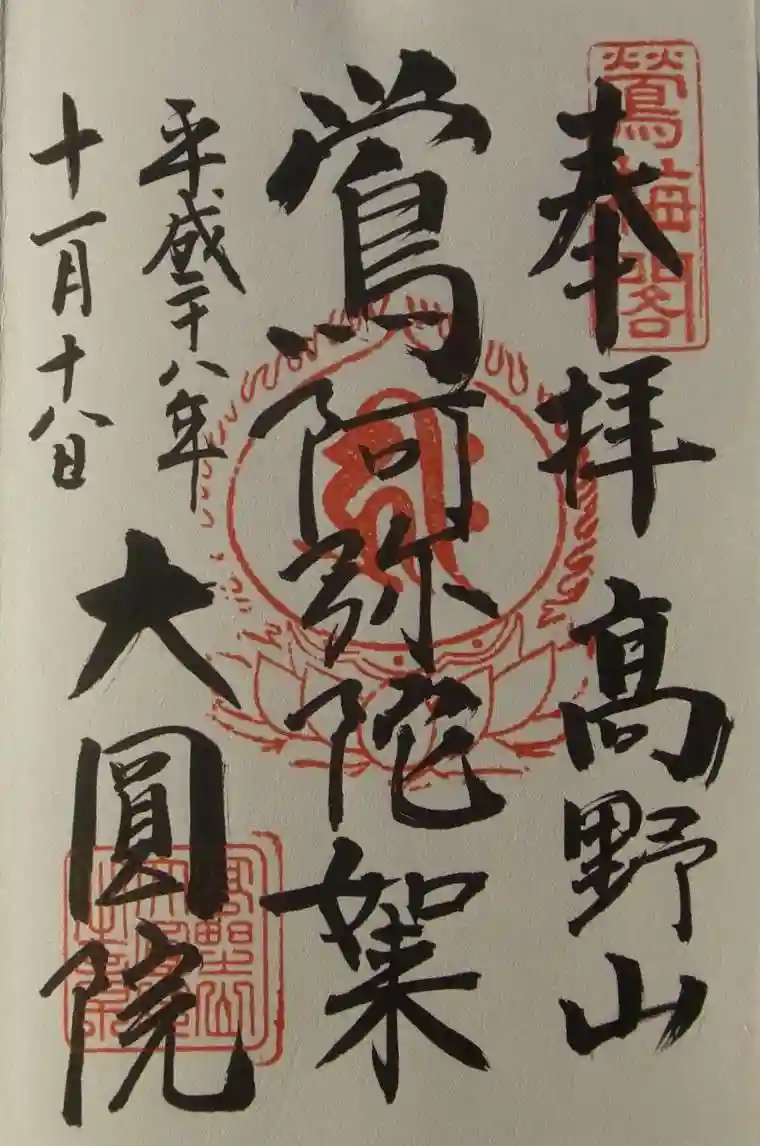 鶯梅閣
奉拝 髙野山
鴬阿弥陀如来
平成二十八年
十一月十八日
大圓院